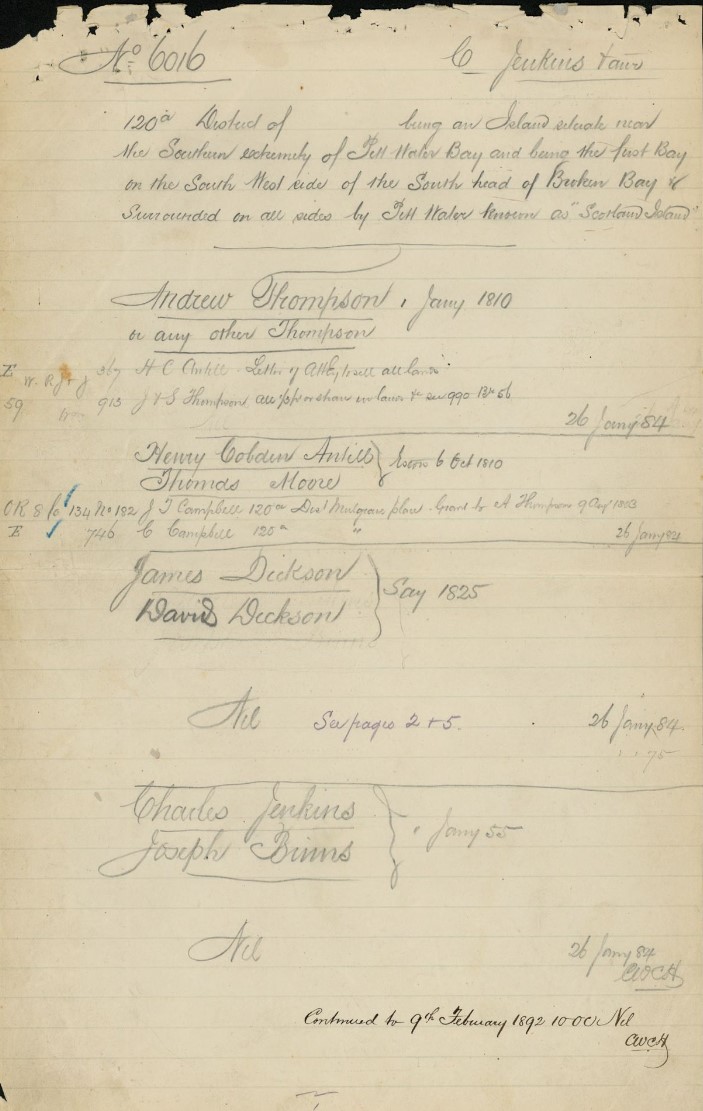 No 6016 C Jenkins & anr
120a District of being an Island situate near
the Southern extremety of Pitt Water Bay and being the first Bay
on the South West side of the South head of Broken Bay &
Surrounded on all sides by Pitt Water known as "Scotland Island"
Andrew Thompson , Jany 1810
or any other Thompson
E W. R J & J 367 H C Antill Letter of Atty to sell all lands
59 913 J & S Thompson all ppr or share in lands & see 990 Bk 56
26 Jany 84
Henry Cobden Antill } Exors 6 Oct 1810
Thomas Moore
OR 8 fo 134 No 182 J T Campbell 120a Dist Mulgrave plan Grant to A Thompson 9 Aug 1803
E 746 C Campbell 120a " 26 Jany 84
James Dickson } Say 1825
David Dickson
Nil See pages 2 + 5. 26 Jany 84
75
Charles Jenkins } Jany 55
Joseph Binns
Nil 26 Jany 84
CWCH
Continued to 9th February 1892 10.00 Nil
CWCH